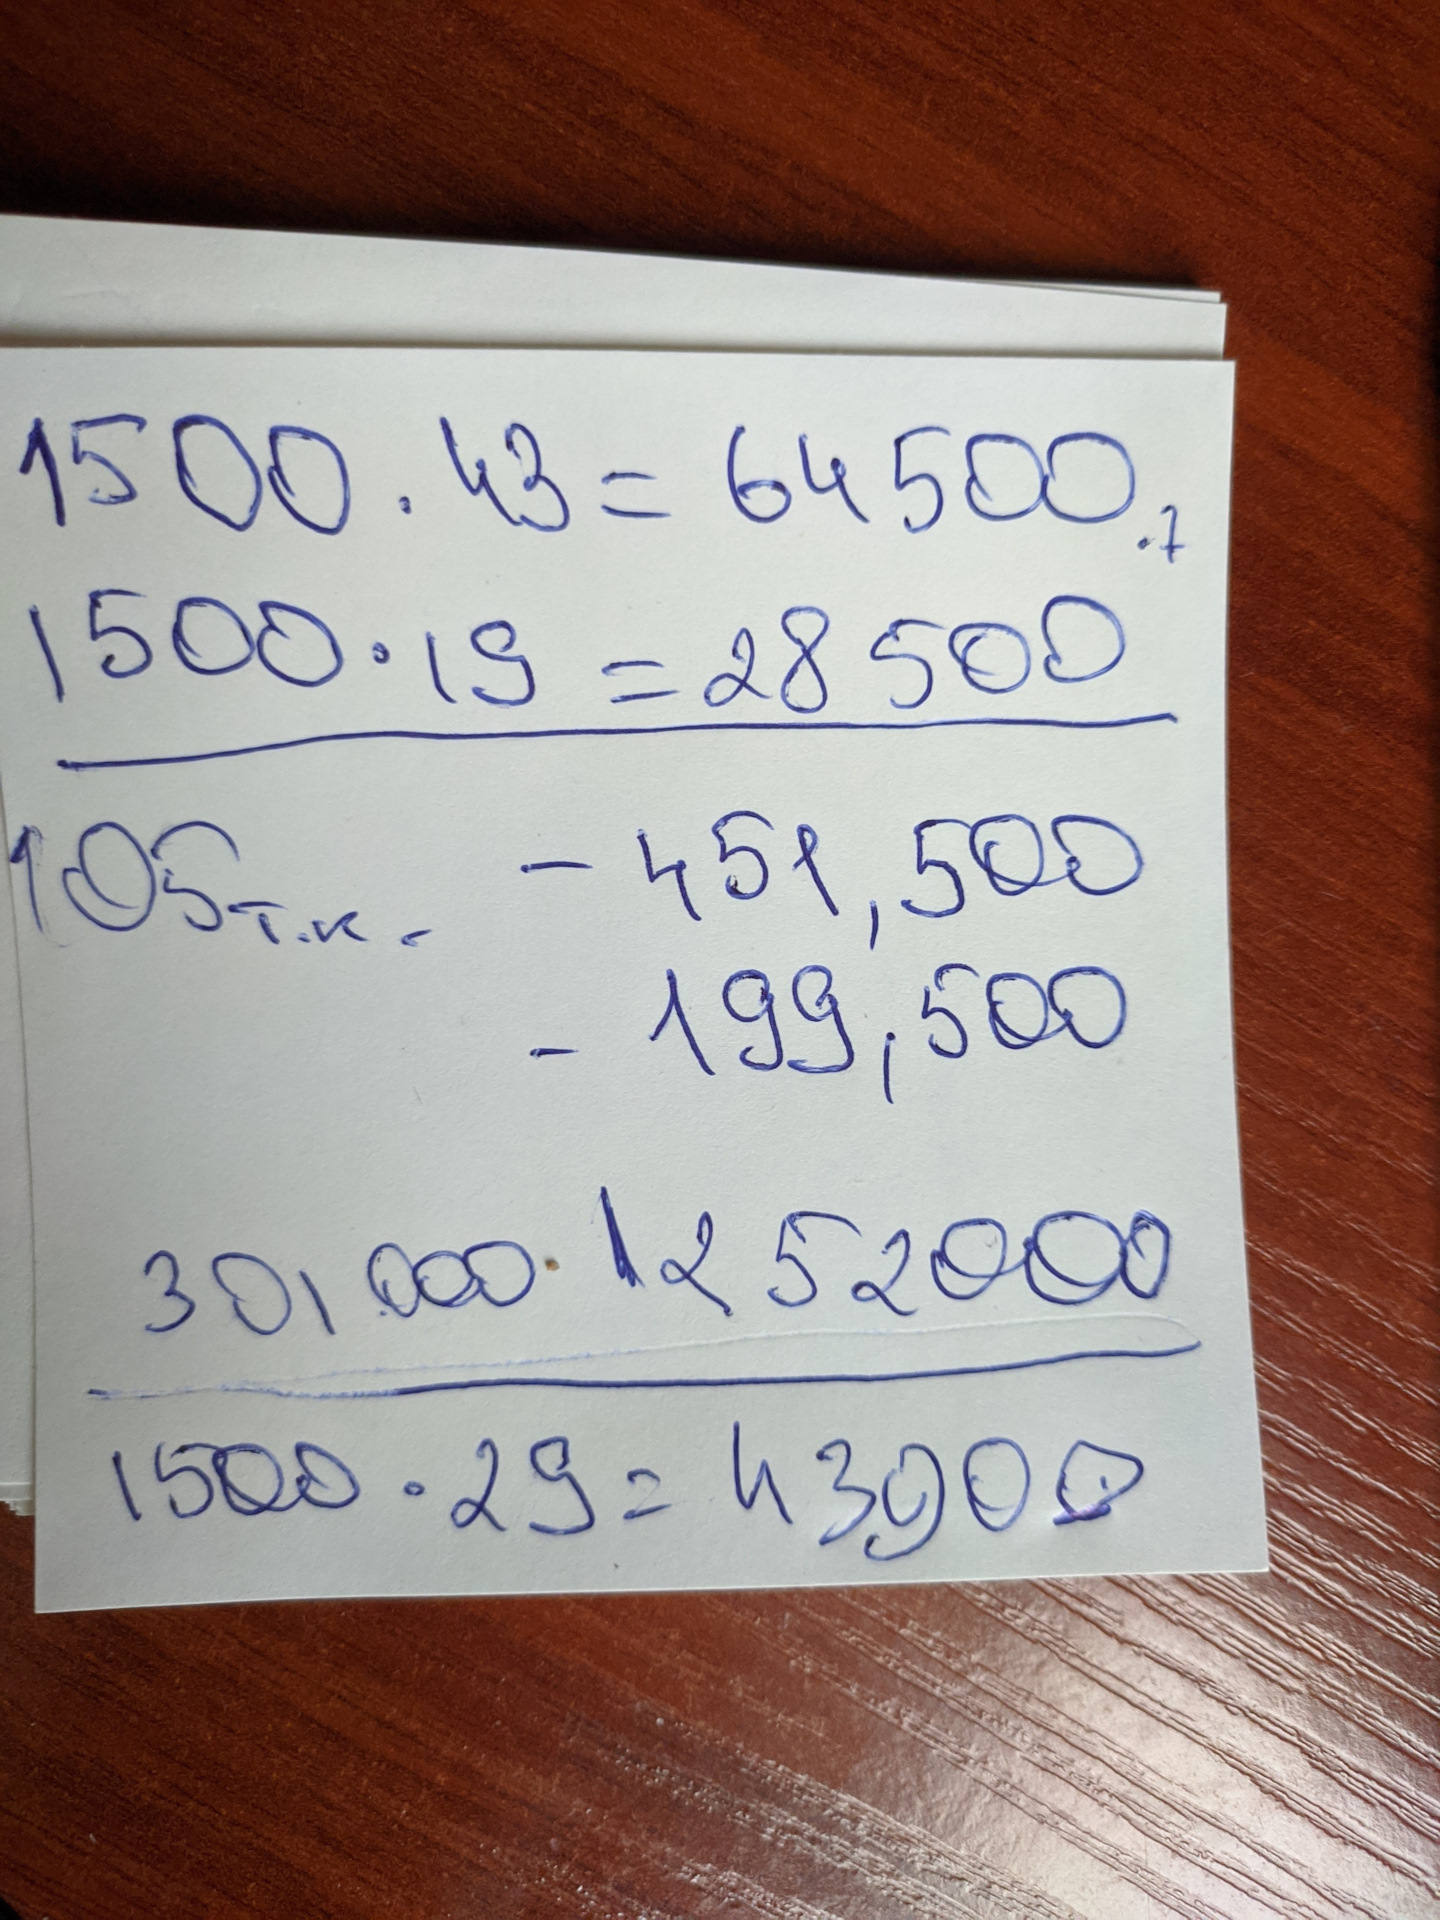 1500 · 43 = 64500
· 7
1500 · 19 = 28500
105 т.к. - 451,500
- 199,500
301 000 · 1252000
1500 · 29 = 43900